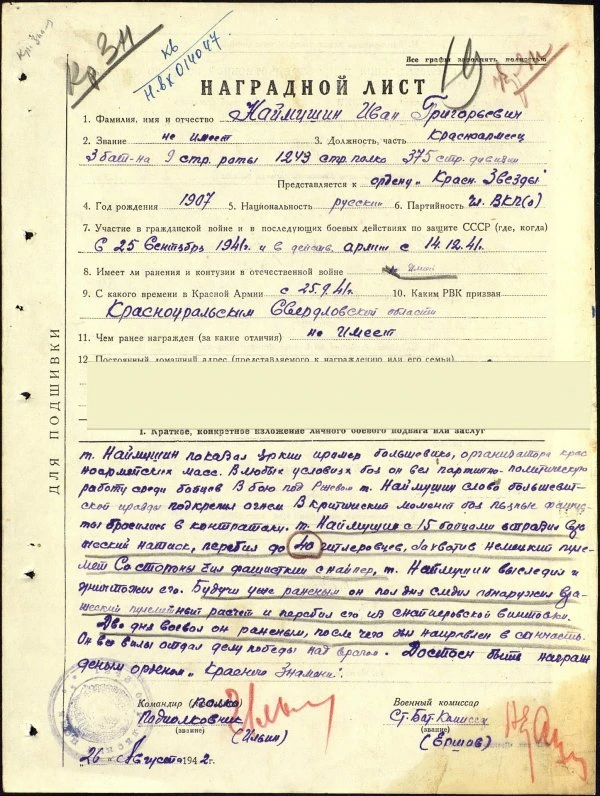 Кр. Знам
Кр ЗН
кв
Н.вх 014047
Все графы заполнять полностью
НАГРАДНОЙ ЛИСТ
1. Фамилия, имя и отчество Наймушин Иван Григорьевич
2. Звание не имеет 3. Должность, часть Красноармеец
3 бат-на 9 стр. роты 1243 стр. полка 375 стр. дивизии
Представляется к ордену „Красн. Звезды"
4. Год рождения 1907 5. Национальность русский 6. Партийность Чл. ВКП(о)
7. Участие в гражданской войне и в последующих боевых действиях по защите СССР (где, когда)
С 25 Сентябрь 1941г. и в действ. армии с 14.12.41.
8. Имеет ли ранения и контузии в отечественной войне
9. С какого времени в Красной Армии с 25.9.41г. 10. Каким РВК призван
Красноуральским Свердловской области
11. Чем ранее награжден (за какие отличия) не имеет
12. Постоянный домашний адрес (представляемого к награждению или его семьи)
ДЛЯ ПОДШИВКИ
I. Краткое, конкретное изложение личного боевого подвига или заслуг
т. Наймушин показал яркий пример большевика, организатора крас
ноармейских масс. В любых условиях боя он вел партийно-политическую
работу среди бойцов В бою под Ржевом т. Наймушин слово большевит-
ской правды подкрепил огнем В критический момент боя пьяные фашис
ты бросились в контратаку. т. Наймушин с 15 бойцами отразил вра
жеский натиск, перебил до 40 гитлеровцев, захватив немецкий пуле-
мет Со стороны бил фашисткий снайпер, т. Наймушин выследил и
уничтожил его. Будучи уже раненым он пол дня следил обнаружил вра-
жеский пулеметный расчет и перебил его из снайперовской винтовки.
Два дня воевал он раненым, после чего был направлен в санчасть.
Он все силы отдал делу победы над врагом. Достоен быть награж
деным орденом „Красного Знамени".
Командир полка
Подполковник
(звание)
(Ильин)
Военный комиссар
Ст. Бат. Комиссар
(звание)
(Ершов)
26 Августа 1942 г.